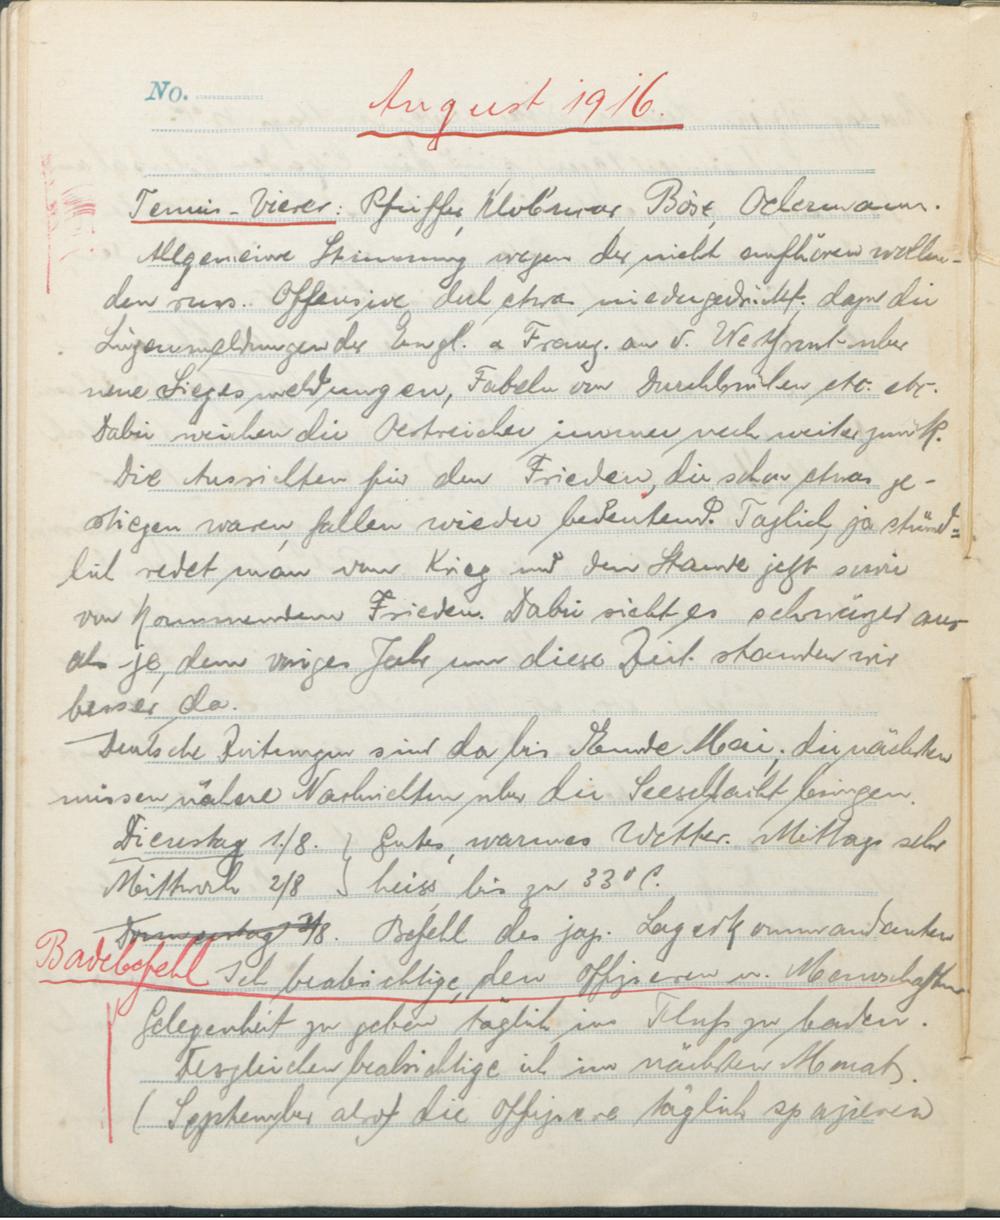 No.
August 1916.
Tennis-Vierer: Pfeiffer, Klobucar, Böse, Oelermann.
Allgemeine Stimmung wegen der nicht aufhören wollen-
den russ. Offensive doch etwas niedergedrückt, dazu die
Lügenmeldungen der Engl. u Franz. an d. Westfront über
neue Siegesmeldungen, Fabeln von Durchbrüchen etc. etc.
Dabei weichen die Oestreicher immer noch weiter zurück.
Die Aussichten für den Frieden, die schon etwas ge-
stiegen waren, fallen wieder bedeutend. Täglich, ja stünd-
lich redet man vom Krieg und dem Stande jetzt sowie
von kommendem Frieden. Dabei sieht es schwärzer aus
als je, denn voriges Jahr um diese Zeit standen wir
besser da.
Deutsche Zeitungen sind da bis Ende Mai, die nächsten
müssen nähere Nachrichten über die Seeschlacht bringen.
Dienstag 1./8. } Gutes, warmes Wetter. Mittags sehr
Mittwoch 2/8 } heiss, bis zu 33° C.
Donnerstag 3/8. Befehl des jap. Lagerkommandanten
Badebefehl Ich beabsichtige, den Offizieren u. Mannschaften
Gelegenheit zu geben täglich im Fluß zu baden.
Desgleichen beabsichtige ich im nächsten Monat.
(September also) die Offiziere täglich spazieren